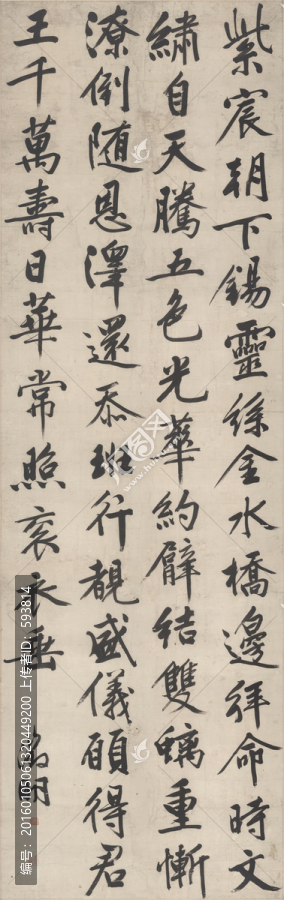 紫宸朝下錫靈絲金水橋邊拜命時文
繡自天騰五色光華約臂結雙螭重慚
潦倒随恩澤還忝班行覩盛儀願得君
王千萬壽日華常照袞衣垂 徵明
编号：20160105061320449200 上传者ID：593814